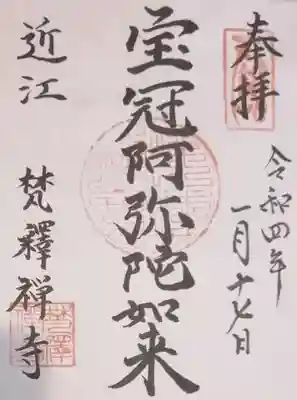 奉拝
令和四年
一月十七日
宝冠阿弥陀如来
近江
梵釋禅寺